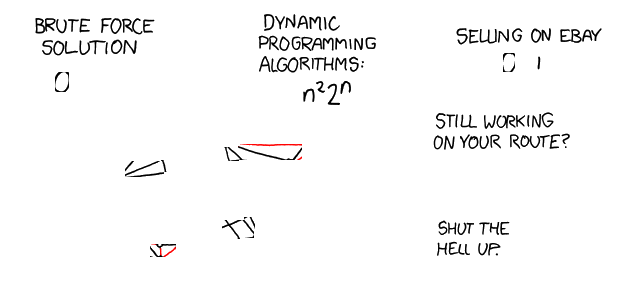 BRUTE FORCE
SOLUTION
O
DYNAMIC
PROGRAMMING
ALGORITHMS:
n²2ⁿ
SELLING ON EBAY
O 1
STILL WORKING
ON YOUR ROUTE?
SHUT THE
HELL UP.